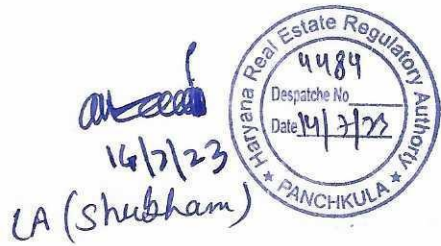 14/7/23
LA (Shubham)
Haryana Real Estate Regulatory Authorty
4484
Despatche No
Date 14/7/23
★ PANCHKULA ★